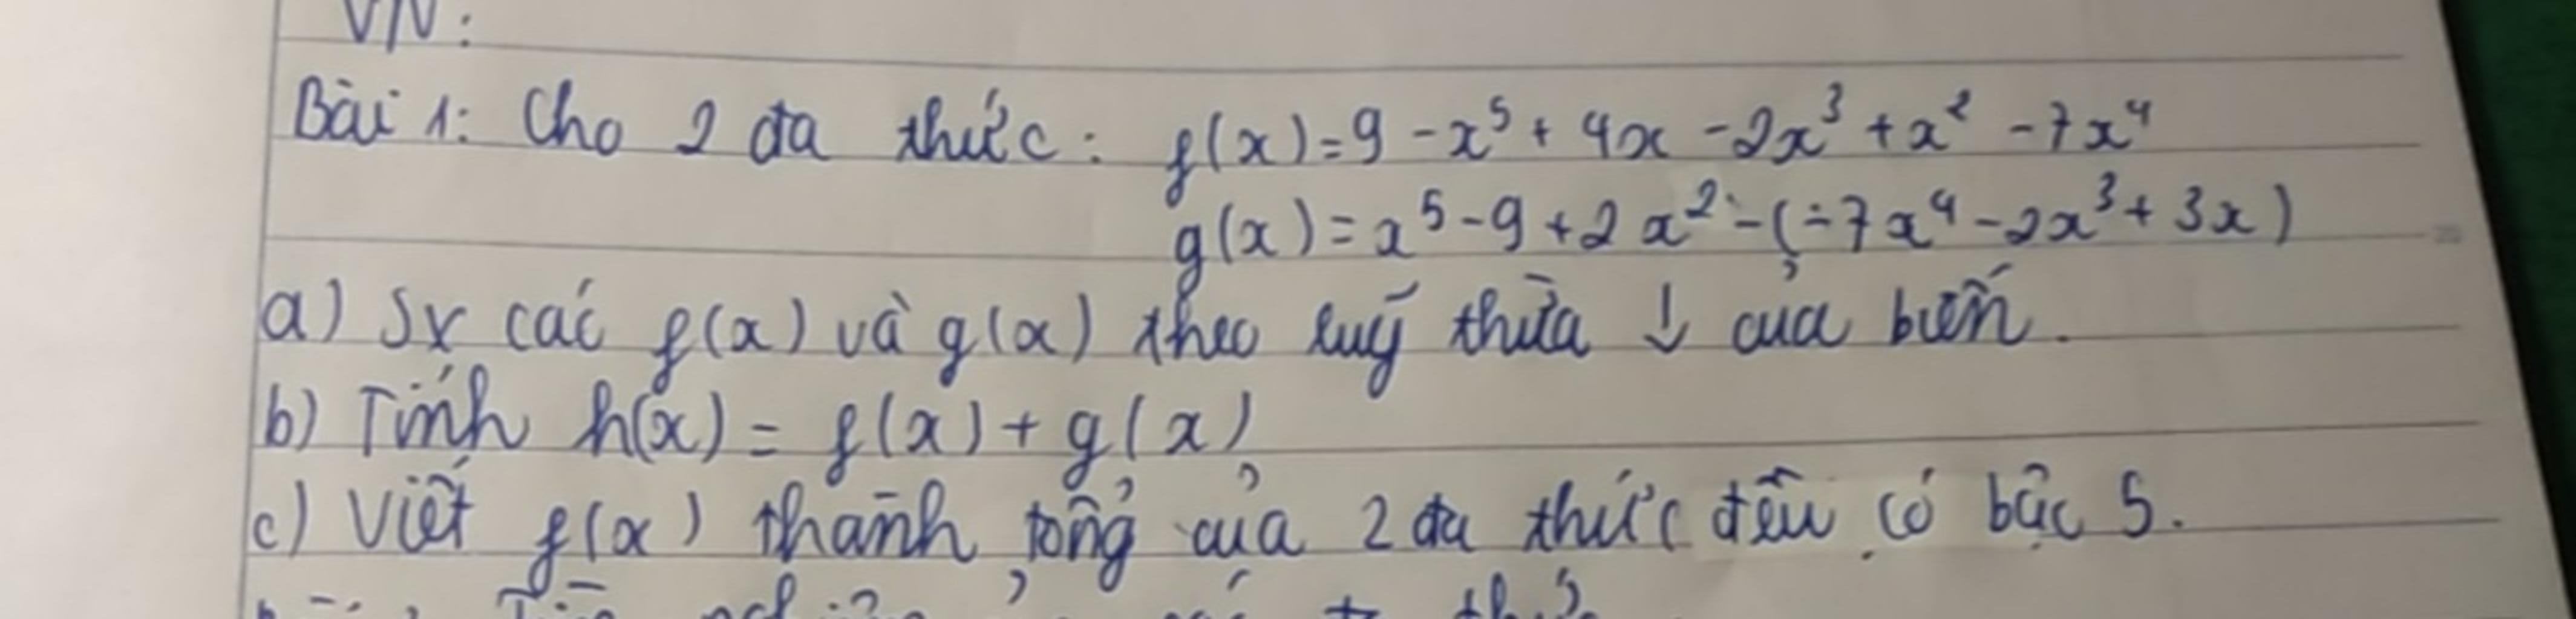 VN:
Bài 1: Cho 2 đa thức: f(x)=9-x⁵+4x-2x³+x²-7x⁴
g(x)=x⁵-9+2x²-(-7x⁴-2x³+3x)
a) Sx các f(x) và g(x) theo luỹ thừa ↓ của biến.
b) Tính h(x)=f(x)+g(x)
c) Viết f(x) thành tổng của 2 đa thức đều có bậc 5.